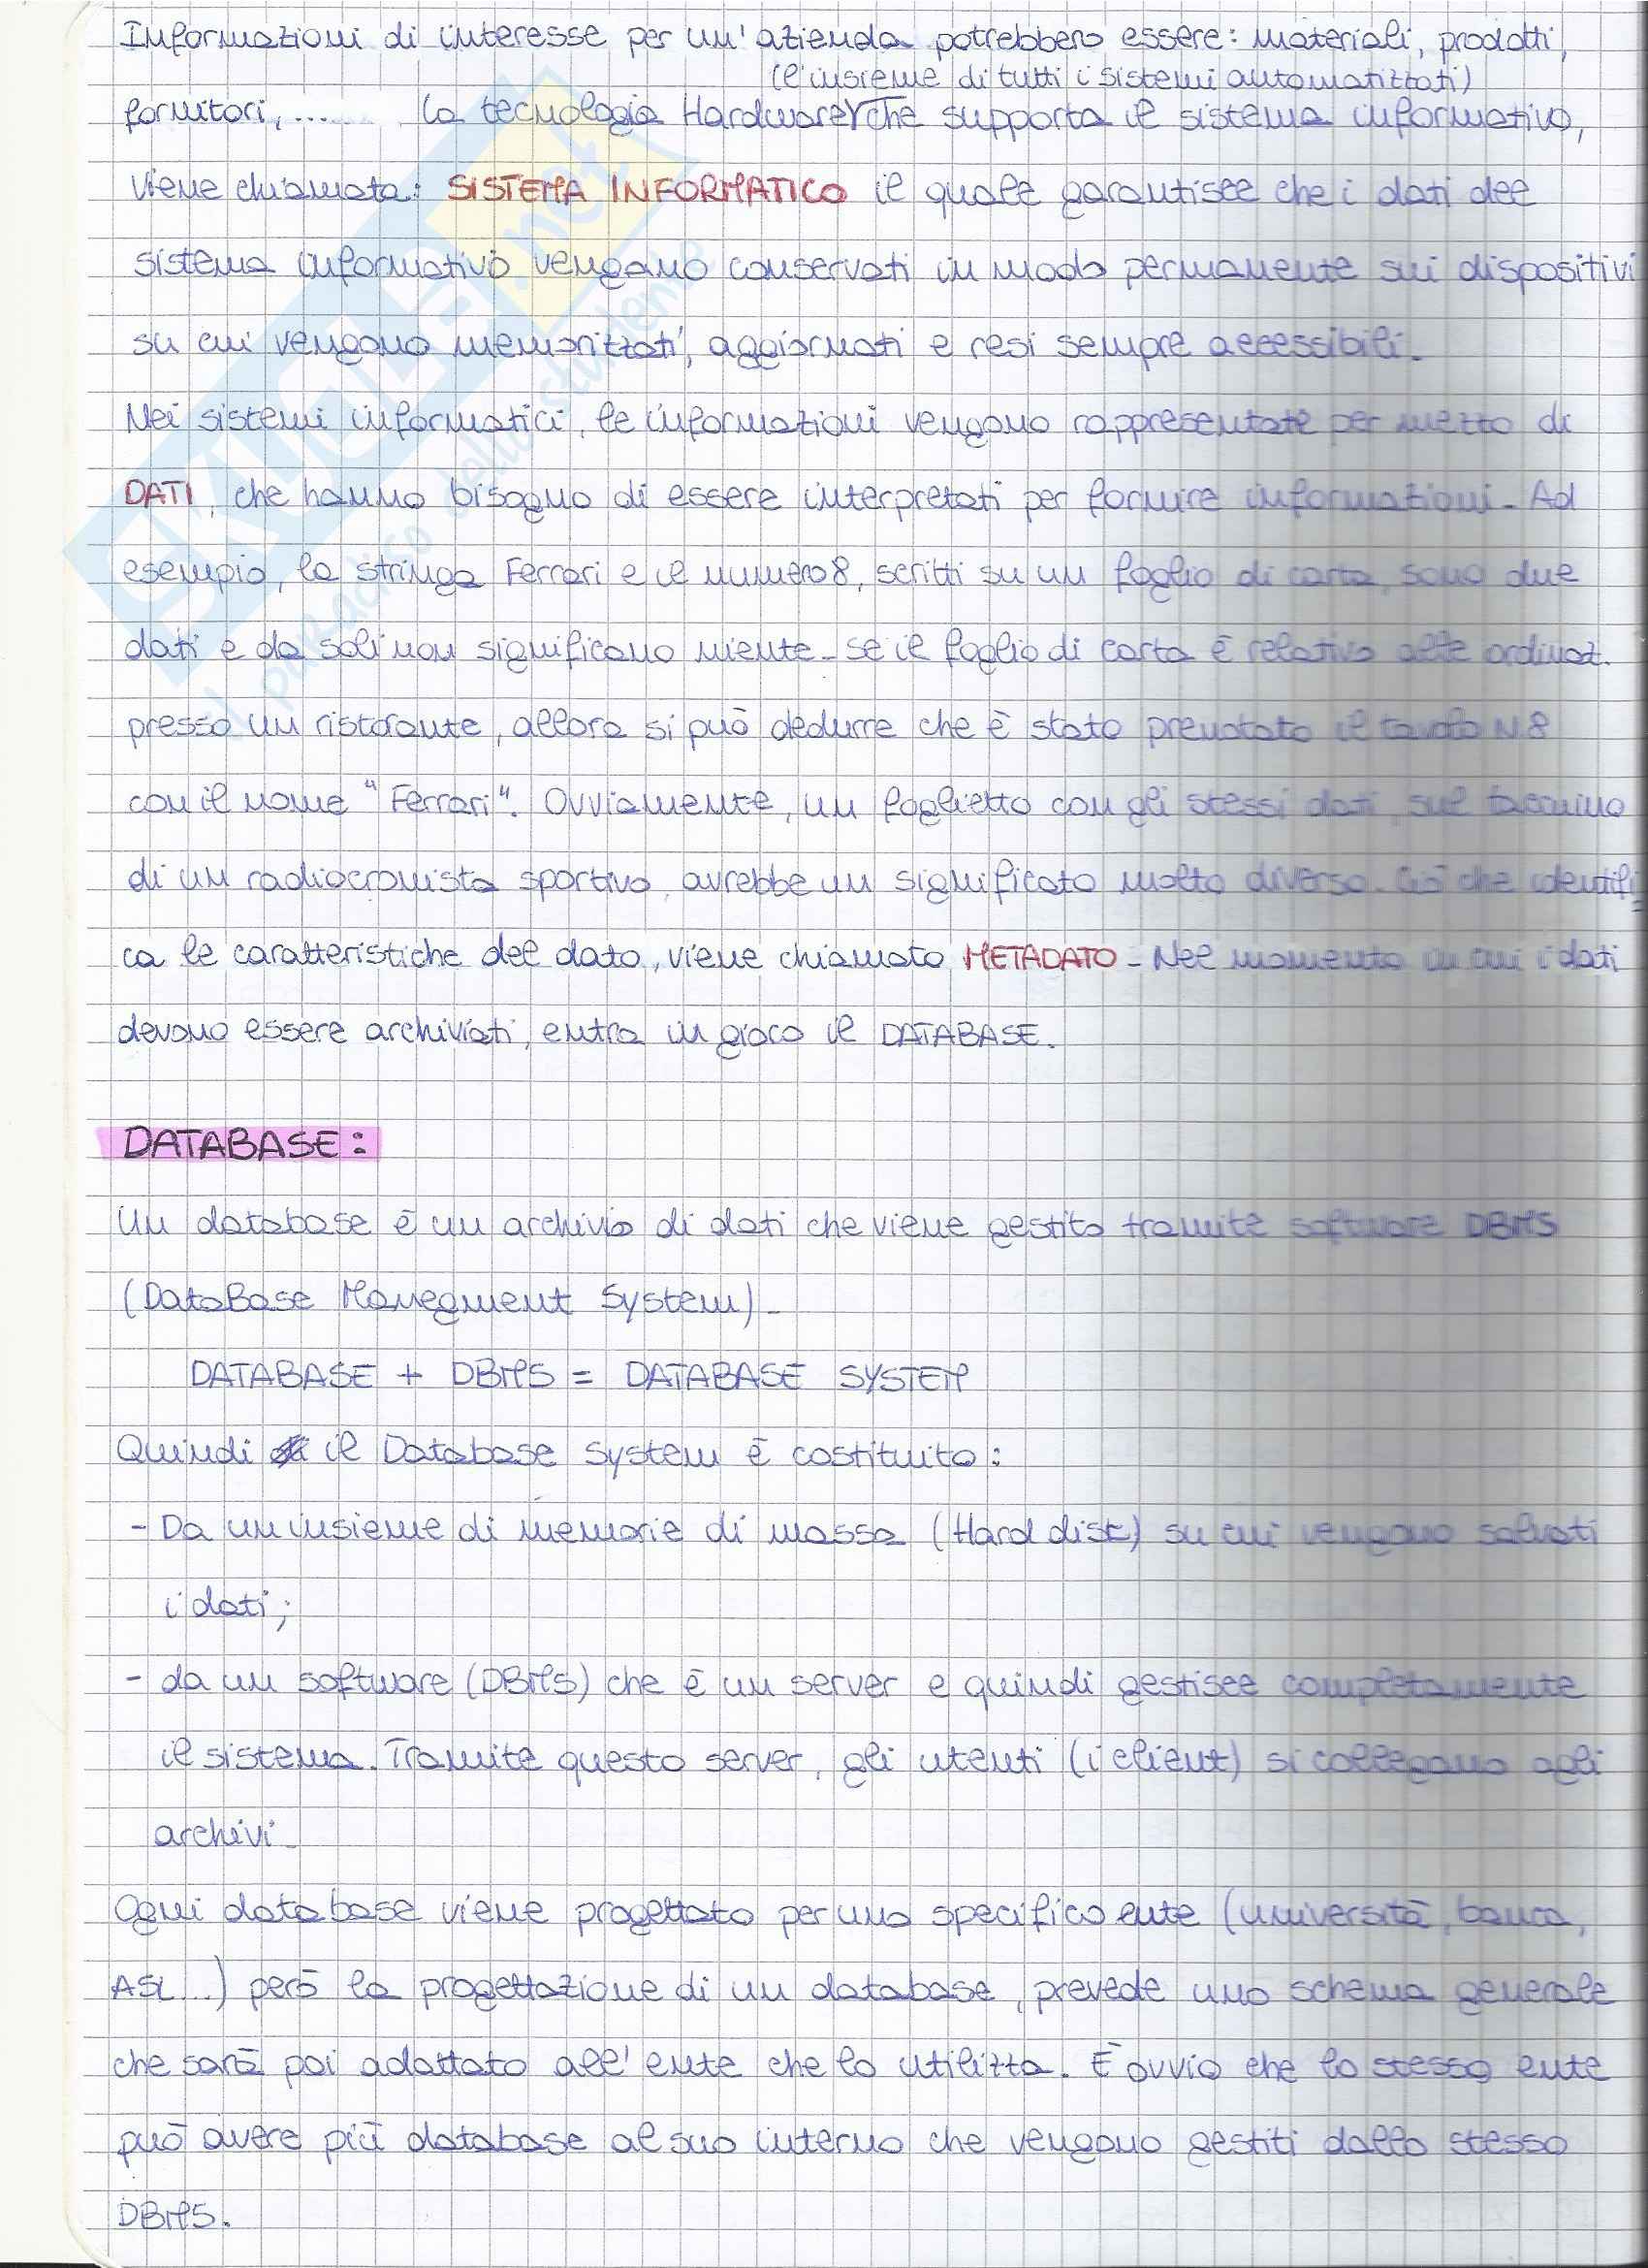 Informazioni di interesse per un'azienda potrebbero essere: materiali, prodotti,
(l'insieme di tutti i sistemi automatizzati)
fornitori, ...... La tecnologia Hardware che supporta il sistema informativo,
viene chiamata: SISTEMA INFORMATICO il quale garantisce che i dati del
sistema informativo vengano conservati in modo permanente sui dispositivi
su cui vengono memorizzati, aggiornati e resi sempre accessibili.
Nei sistemi informatici, le informazioni vengono rappresentate per mezzo di
DATI, che hanno bisogno di essere interpretati per fornire informazioni. Ad
esempio, la stringa Ferrari e il numero 8, scritti su un foglio di carta, sono due
dati e da soli non significano niente. Se il foglio di carta è relativo alle ordinaz.
presso un ristorante, allora si può dedurre che è stato prenotato il tavolo N.8
con il nome "Ferrari". Ovviamente, un foglietto con gli stessi dati, sul taccuino
di un radiocronista sportivo, avrebbe un significato molto diverso. Ciò che identifi=
ca le caratteristiche del dato, viene chiamato METADATO. Nel momento in cui i dati
devono essere archiviati, entra in gioco il DATABASE.
DATABASE:
Un database è un archivio di dati che viene gestito tramite software DBMS
(DataBase Manegment System).
DATABASE + DBMS = DATABASE SYSTEM
Quindi il Database System è costituito:
- Da un insieme di memorie di massa (Hard disk) su cui vengono salvati
i dati;
- da un software (DBMS) che è un server e quindi gestisce completamente
il sistema. Tramite questo server, gli utenti (i client) si collegano agli
archivi.
Ogni database viene progettato per uno specifico ente (università, banca,
ASL...) però la progettazione di un database, prevede uno schema generale
che sarà poi adattato all'ente che lo utilizza. È ovvio che lo stesso ente
può avere più database al suo interno che vengono gestiti dallo stesso
DBMS.
SKUOLA.net
il paradiso dello studente